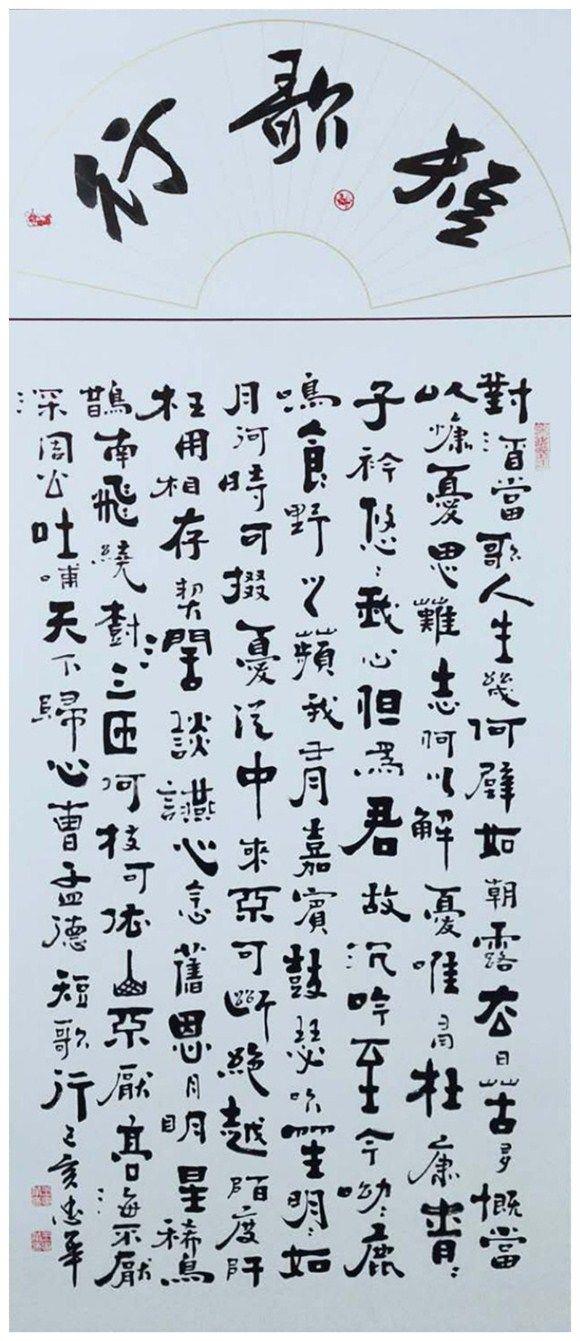 短歌行
對酒當歌人生幾何譬如朝露去日苦多慨當
以慷憂思難忘何以解憂唯有杜康青〻
子衿悠〻我心但為君故沉吟至今呦〻鹿
鳴食野之蘋我有嘉賓鼓瑟吹笙明〻如
月何時可掇憂從中來不可斷絕越陌度阡
枉用相存契闊談讌心念舊恩月明星稀烏
鵲南飛繞樹三匝何枝可依山不厭高海不厭
深周公吐哺天下歸心曹孟德短歌行己亥忠華